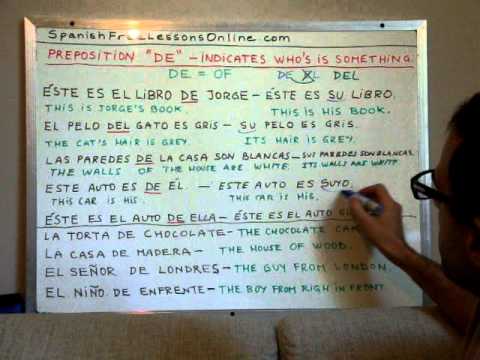 SpanishFreeLessonsOnline.com
PREPOSITION "DE" - INDICATES WHO'S IS SOMETHING.
DE = OF DE EL DEL
ÉSTE ES EL LIBRO DE JORGE - ÉSTE ES SU LIBRO.
THIS IS JORGE'S BOOK. THIS IS HIS BOOK.
EL PELO DEL GATO ES GRIS - SU PELO ES GRIS.
THE CAT'S HAIR IS GREY. ITS HAIR IS GREY.
LAS PAREDES DE LA CASA SON BLANCAS - SUS PAREDES SON BLANCAS.
THE WALLS OF THE HOUSE ARE WHITE. ITS WALLS ARE WHITE
ESTE AUTO ES DE ÉL - ESTE AUTO ES SUYO.
THIS CAR IS HIS. THIS CAR IS HIS.
ÉSTE ES EL AUTO DE ELLA - ÉSTE ES EL AUTO
LA TORTA DE CHOCOLATE - THE CHOCOLATE
LA CASA DE MADERA - THE HOUSE OF WOOD.
EL SEÑOR DE LONDRES - THE GUY FROM LONDON.
EL NIÑO DE ENFRENTE - THE BOY FROM RIGH IN FRONT